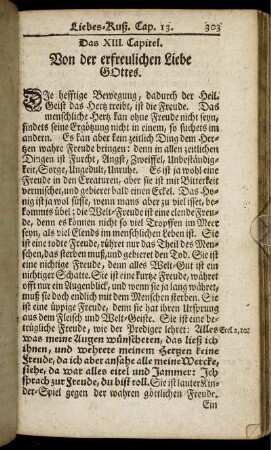 Liebes-Kuß. Cap. 13. 303
Das XIII. Capitel.
Von der erfreulichen Liebe
GOttes.
DIe hefftige Bewegung, dadurch der Heil.
Geist das Hertz treibt, ist die Freude. Das
menschliche Hertz kan ohne Freude nicht seyn,
findets seine Ergötzung nicht in einem, so suchets im
andern. Es kan aber kein zeitlich Ding dem Her-
tzen wahre Freude bringen: denn in allen zeitlichen
Dingen ist Furcht, Angst, Zweiffel, Unbeständig-
keit, Sorge, Ungedult, Unruhe. Es ist ja wohl eine
Freude in den Creaturen, aber sie ist mit Bitterkeit
vermischet, und gebieret bald einen Eckel. Das Ho-
nig ist ja wol süsse, wenn mans aber zu viel isset, be-
kommets übel: die Welt-Freude ist eine elende Freu-
de, denn es können nicht so viel Tropffen im Meer
seyn, als viel Elends im menschlichen Leben ist. Sie
ist eine todte Freude, rühret nur das Theil des Men-
schen, das sterben muß, und gebieret den Tod. Sie ist
eine nichtige Freude, denn alles Welt-Gut ist ein
nichtiger Schatte. Sie ist eine kurtze Freude, währet
offt nur ein Augenblick, und wenn sie ja lang währet,
muß sie doch endlich mit dem Menschen sterben. Sie
ist eine üppige Freude, denn sie hat ihren Ursprung
aus dem Fleisch und Welt-Geiste. Sie ist eine be-
trügliche Freude, wie der Prediger lehret: Alles Eccl. 2, 10.
was meine Augen wünscheten, das ließ ich
ihnen, und wehrete meinem Hertzen keine
Freude, da ich aber ansahe alle meine Wercke,
siehe, da war alles eitel und Jammer: Ich
sprach zur Freude, du bist toll. Sie ist lauter Kin-
der-Spiel gegen der wahren göttlichen Freude.
Ein